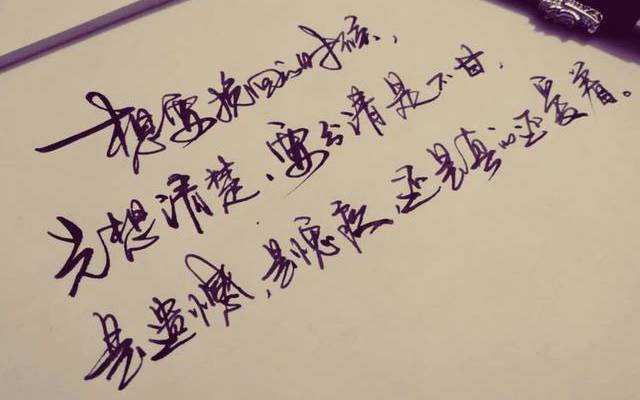 想要挽回的时候，
先想清楚、要分清是不甘，
是遗憾，是愧疚，还是真心还爱着。